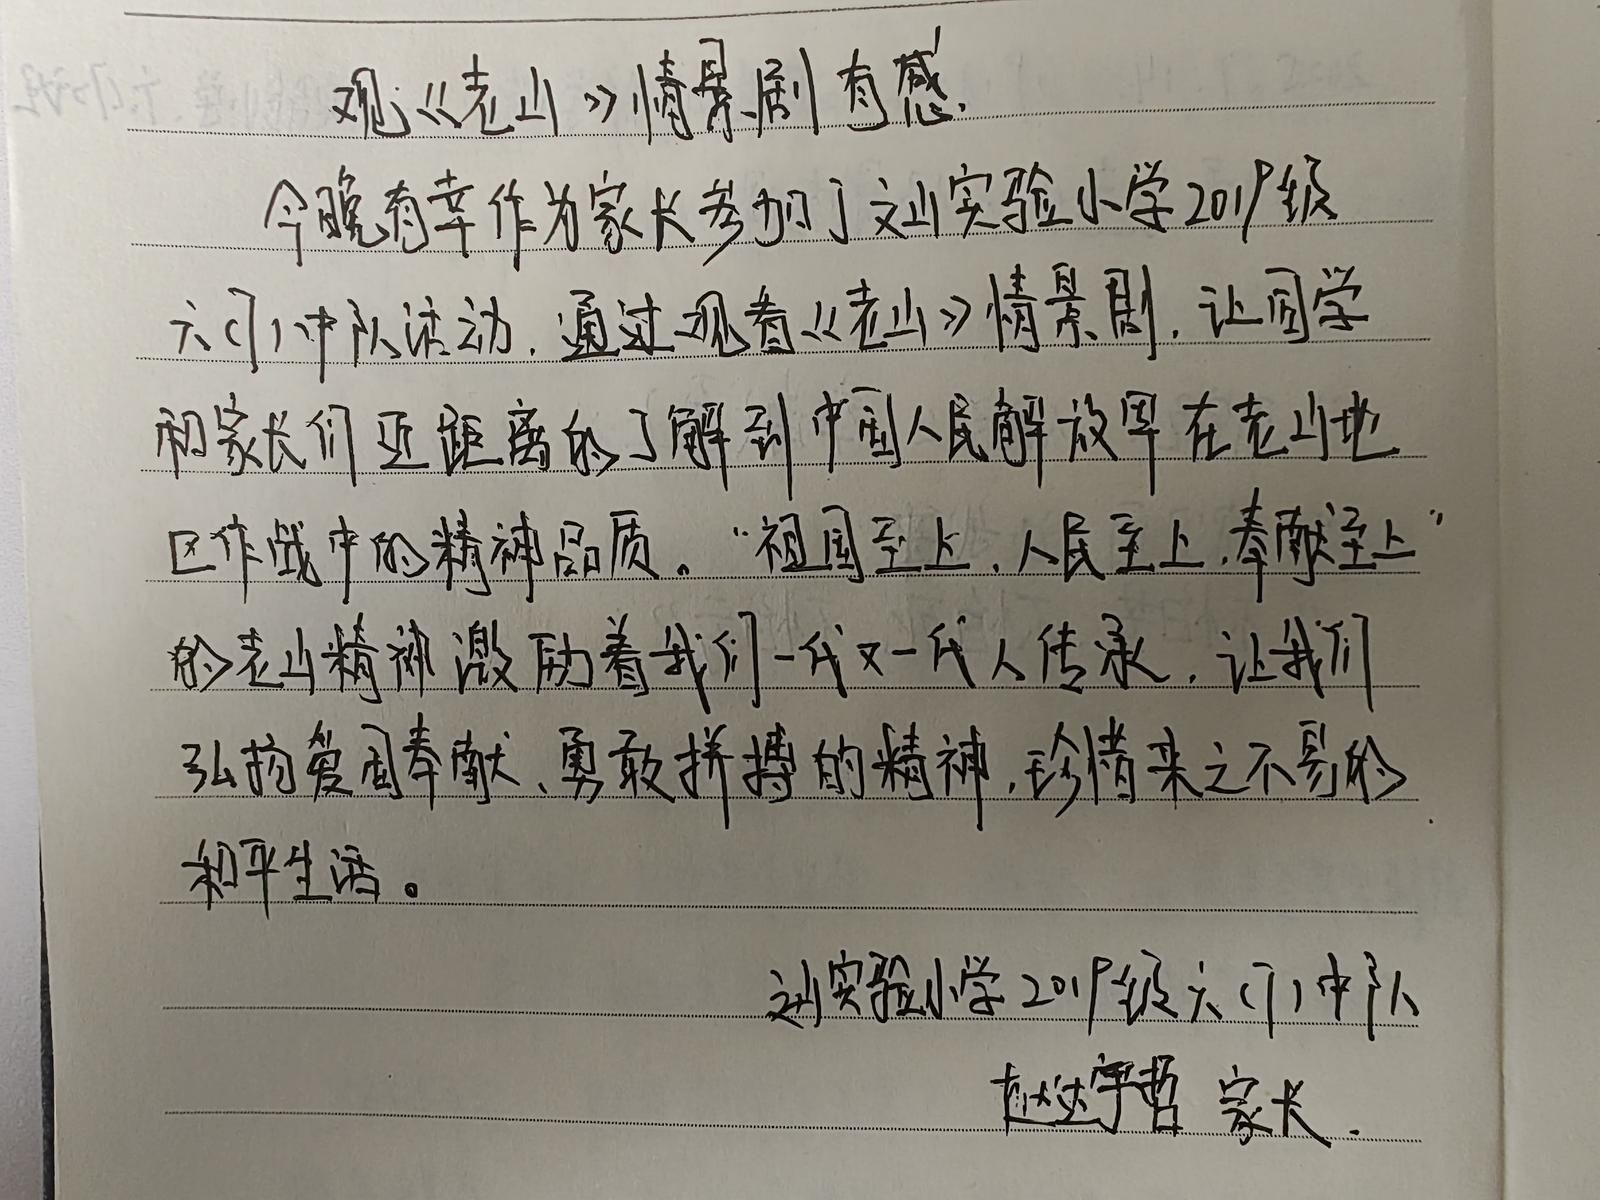 观《老山》情景剧有感.
今晚有幸作为家长参加了文山实验小学2019级
六(7)中队活动,通过观看《老山》情景剧,让同学
和家长们近距离的了解到中国人民解放军在老山地
区作战中的精神品质。“祖国至上,人民至上,奉献至上”
的老山精神激励着我们一代又一代人传承,让我们
弘扬爱国奉献、勇敢拼搏的精神,珍惜来之不易的
和平生活。
文山实验小学2019级六(7)中队
赵达宇哲 家长.